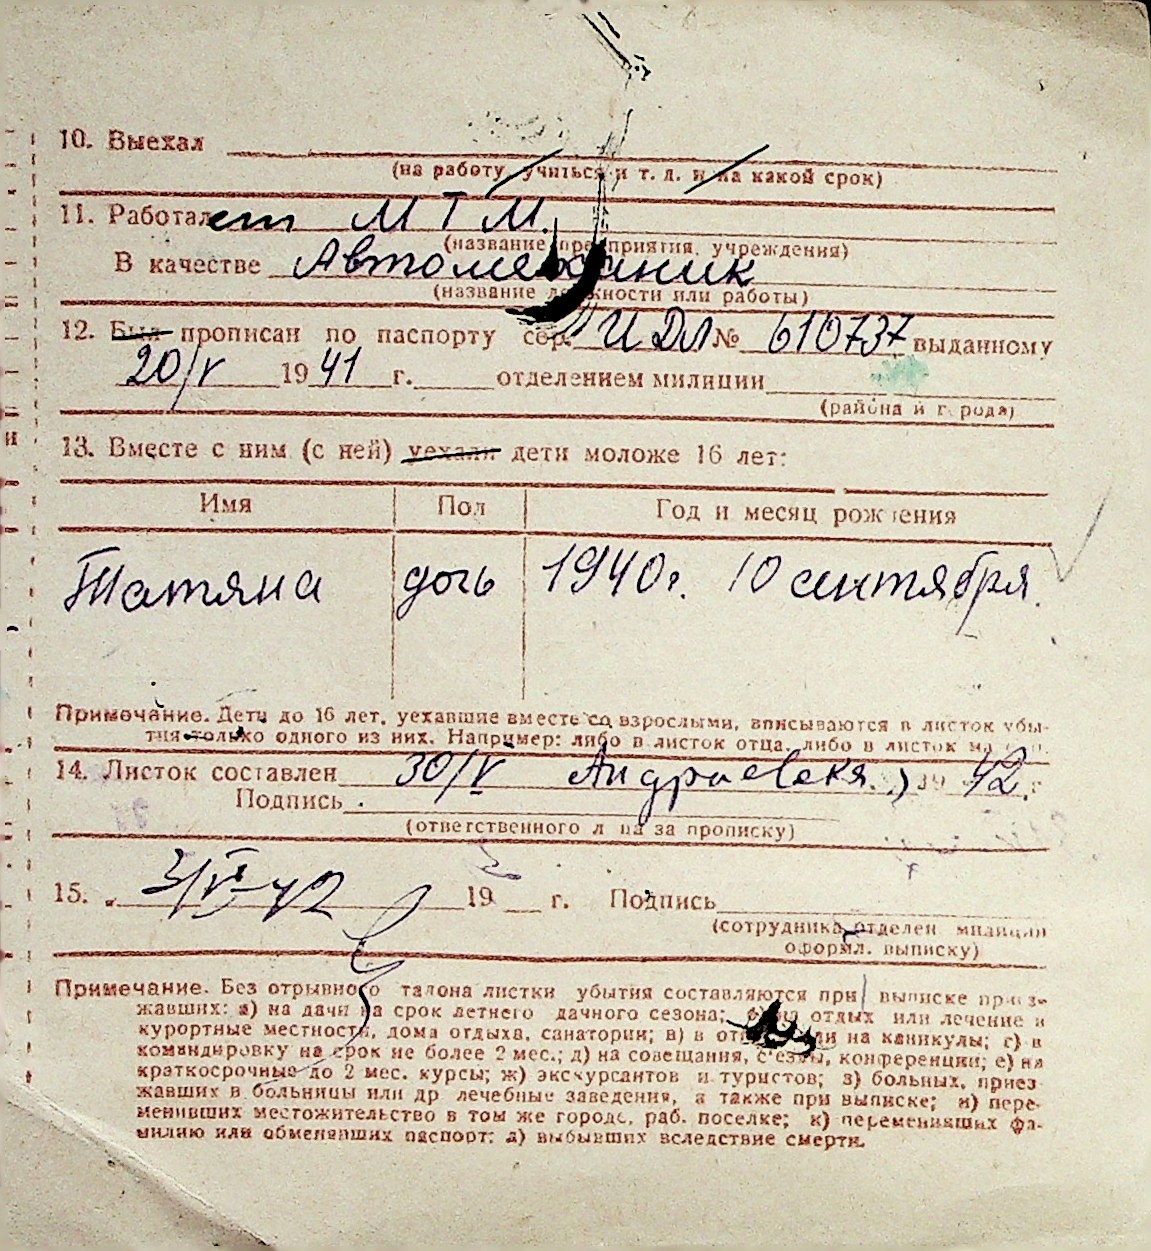 10. Выехал
(на работу, учиться и т. д. и на какой срок)
11. Работает МТМ.
(название предприятия, учреждения)
В качестве Автомеханик
(название должности или работы)
12. Был прописан по паспорту сер. ИДЛ № 610737 выданному
20/V 1941 г. отделением милиции
(района и города)
13. Вместе с ним (с ней) уехали дети моложе 16 лет:
Имя Пол Год и месяц рождения
Татяна дочь 1940г. 10 сентября.
Примечание. Дети до 16 лет, уехавшие вместе со взрослыми, вписываются в листок убы-
тия только одного из них. Например: либо в листок отца, либо в листок
14. Листок составлен 30/V 19 42 г
Подпись
(ответственного лица за прописку)
15. 3/VI-42 19 г. Подпись
(сотрудника отделен милиции
оформл. выписку)
Примечание. Без отрывного талона листки убытия составляются при выписке приез-
жавших: а) на дачи на срок летнего дачного сезона; на отдых или лечение в
курортные местности, дома отдыха, санатории; в) в на каникулы; г) в
командировку на срок не более 2 мес.; д) на совещания, с'езды, конференции; е) на
краткосрочные до 2 мес. курсы; ж) экскурсантов и туристов; з) больных, приез
жавших в больницы или др лечебные заведения, а также при выписке; и) пере-
менивших местожительство в том же городе, раб. поселке; к) переменивших фа-
милию или обменявших паспорт; л) выбывших вследствие смерти.